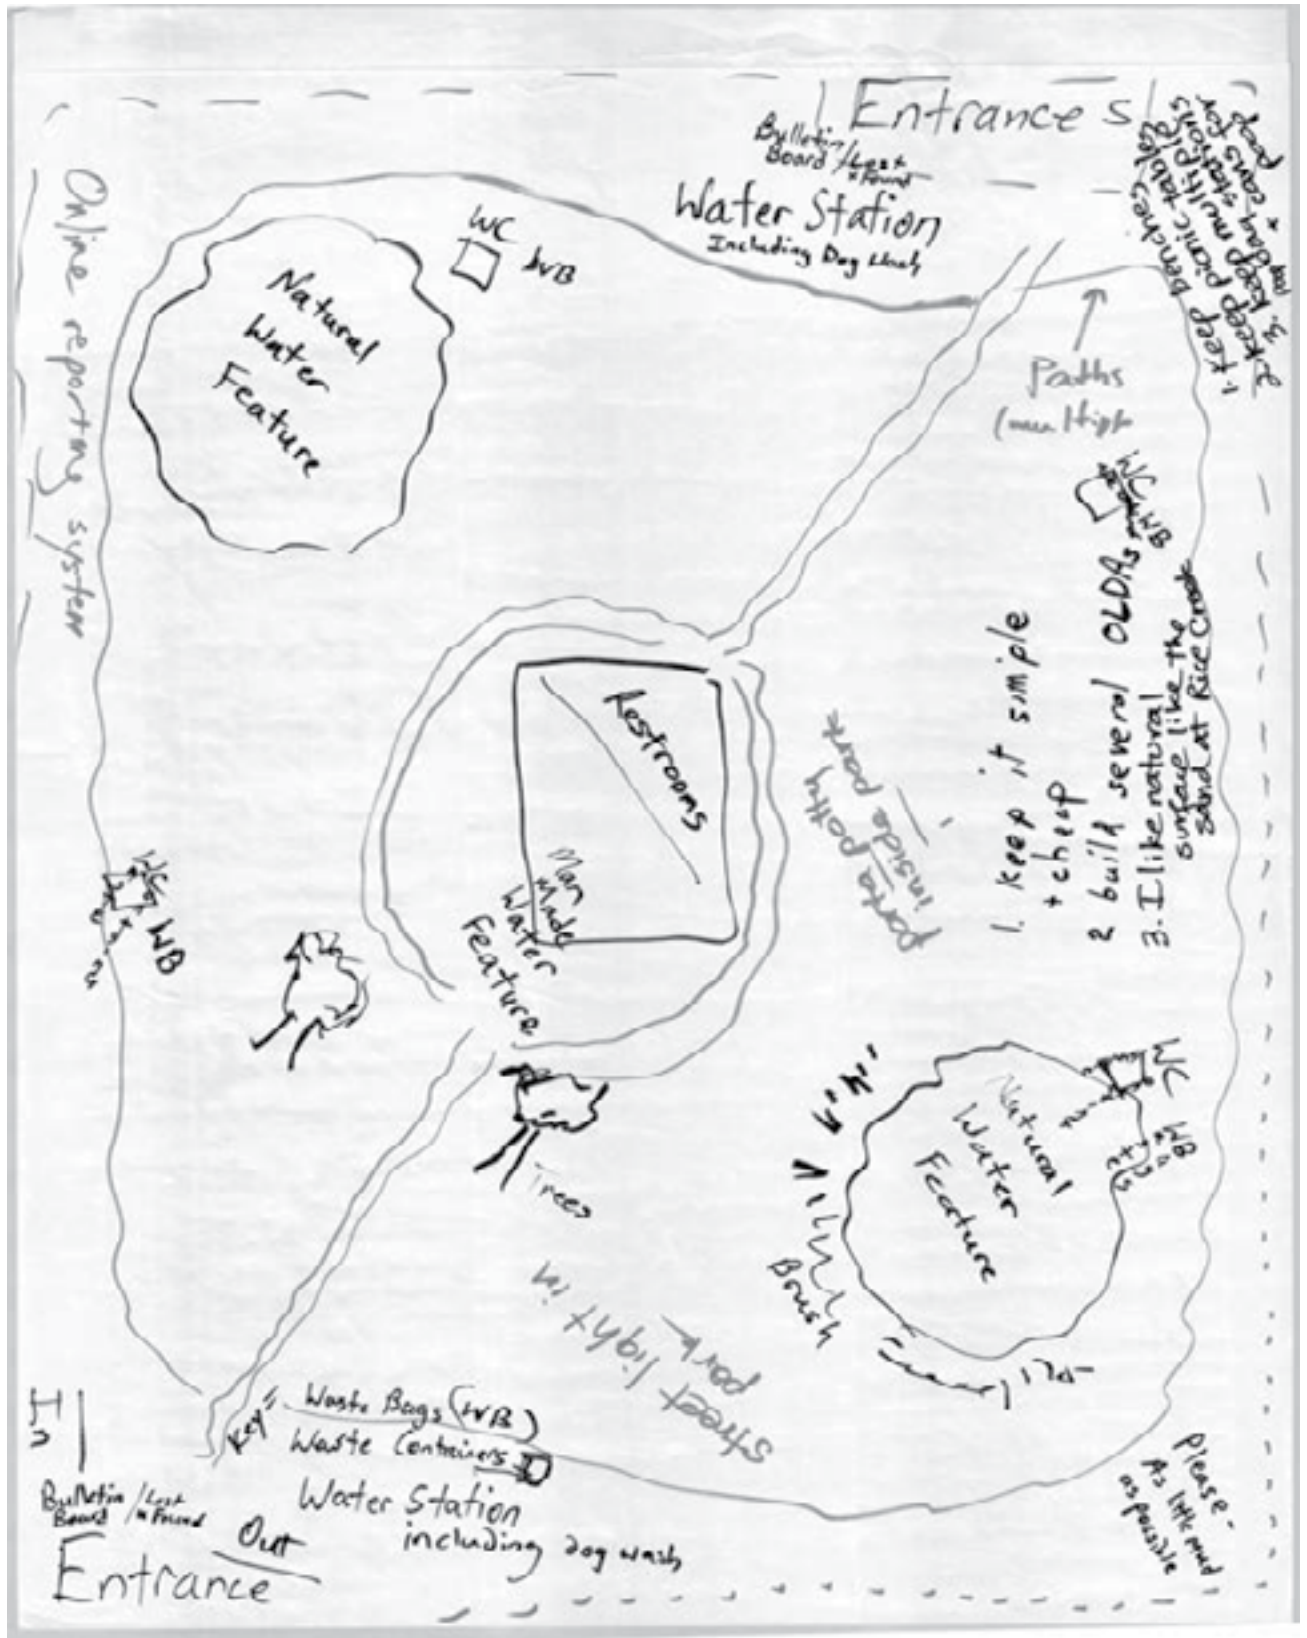 Entrances
Bulletin
Board / Lost
+ Found
Water Station
Including Dog Wash
1. Keep benches
2 keep picnic tables
3. keep multiple
bag stations
+ cans for
poop
Online reporting system
WC
WB
Natural
Water
Feature
Paths
(multiple
WC
WB
1. keep it simple
+ cheap
2 build several OLDAs
3. I like natural
surface like the
sand at Rice Creek
Restrooms
Man
Made
Water
Feature
porta potty
inside park
WC
WB
Trees
Natural
Water
Feature
WC
WB
Brush
street light in
park
Key
Waste Bags (WB)
Waste Containers
Water Station
including dog wash
In
Bulletin
Board / Lost
+ Found
Out
Entrance
Please -
As little mud
as possible